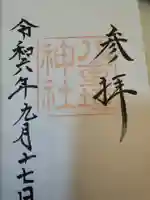 参拝
神社
令和六年九月十七日